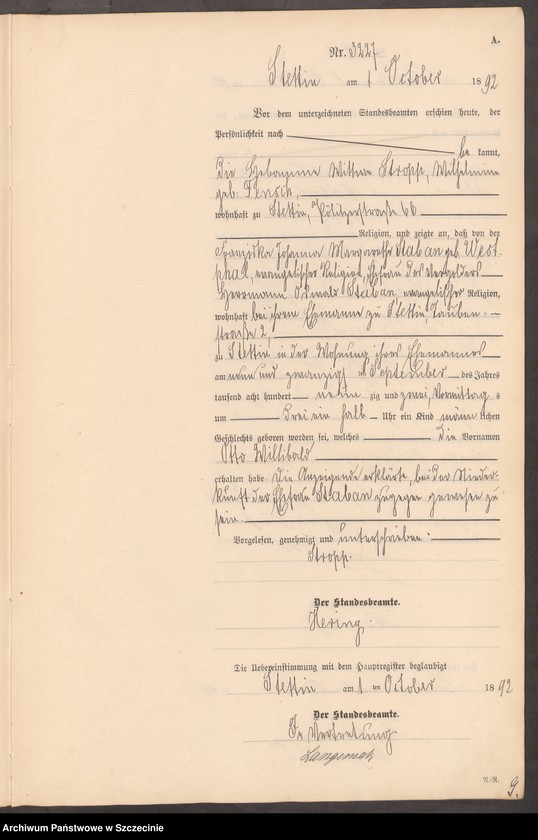 A.
Nr. 3227
Stettin am 1 October 1892
Vor dem unterzeichneten Standesbeamten erschien heute, der
Persönlichkeit nach
be kannt,
die Hebamme Wittwe Stropp, Wilhelmine
geb. Fensch,
wohnhaft zu Stettin, Pölitzerstraße 66
Religion, und zeigte an, daß von der
Franziska Johanna Margarethe Staban geb. West-
phal, evangelischer Religion, Ehefrau des Vergolders
Herrmann Oswald Staban evangelischer Religion,
wohnhaft bei ihrem Ehemanne zu Stettin, Tauben-
straße 2,
zu Stettin in der Wohnung ihres Ehemannes
am neun und zwanzigsten September des Jahres
tausend acht hundert neun zig und zwei, Vormittags
um drei ein halb Uhr ein Kind männ lichen
Geschlechts geboren worden sei, welches die Vornamen
Otto Willibald
erhalten habe. Die Anzeigende erklärte, bei der Nieder-
kunft der Ehefrau Staban zugegen gewesen zu
sein.
Vorgelesen, genehmigt und unterschrieben:
Stropp.
Der Standesbeamte.
Hering.
Die Uebereinstimmung mit dem Hauptregister beglaubigt
Stettin am 1 ten October 1892
Der Standesbeamte.
In Vertretung
N.-R.
9.
Archiwum Państwowe w Szczecinie